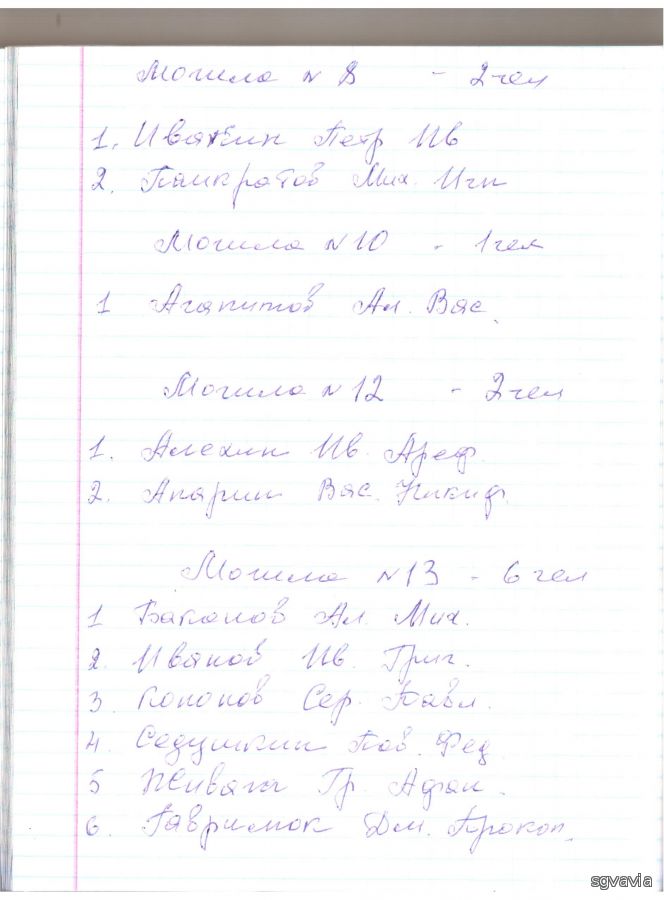 Могила № 8 - 2 чел
1. Ивакин Петр Ив
2. Панкратов Мих. Игн
Могила № 10 - 1 чел
1 Агапитов Ал. Вас.
Могила № 12 - 2 чел
1. Алехин Ив. Ареф.
2. Апарин Вас. Никиф.
Могила № 13 - 6 чел
1 Баканов Ал. Мих.
2. Иванов Ив. Григ.
3. Кононов Сер. Павл.
4. Седушкин Пав. Фед.
5 Гр. Афан.
6. Дм. Прокоп.
sgvavia